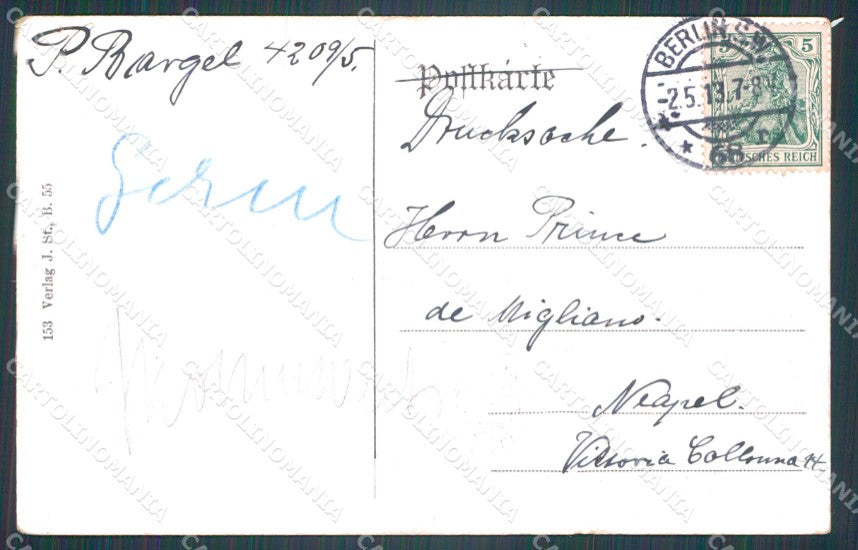 P. Bargel 4209/5.
Postkarte
Drucksache.
BERLIN S.W.
-2.5.13.7-8V.
* 68 r *
5 5
DEUTSCHES REICH
Herrn Prince
de Migliano.
Neapel.
Vittoria Collonna 14
153 Verlag J. St., B. 55
CARTOLINOMANIA